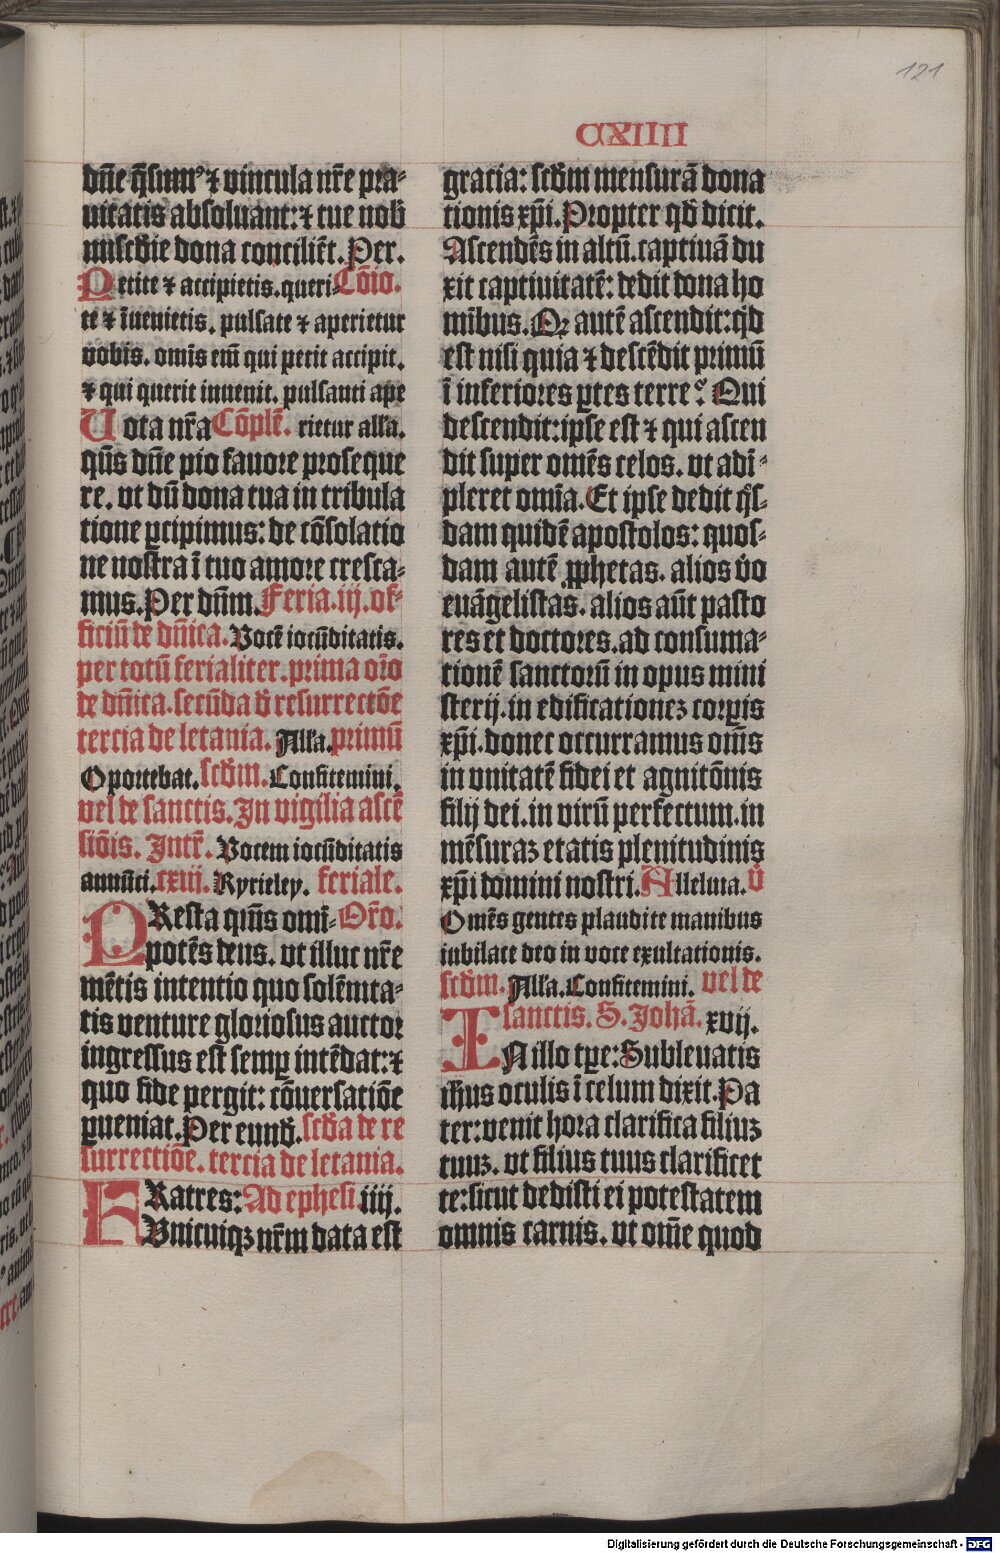 121
CXIIII
dñe q̃sumꝰ ⁊ vincula nr̄e pra-
uitatis absoluant: ⁊ tue nob̄
mis̄cd̄ie dona conciliēt. Per.
Petite ⁊ accipietis. queri- Cōīo.
te ⁊ īuenietis. pulsate ⁊ aperietur
vobis. omīs em̄ qui petit accipit.
⁊ qui querit inuenit. pulsanti ape
Uota nr̄a Cōplē. rietur alla.
q̄s dñe pio fauore proseque
re. vt dū dona tua in tribula
tione ꝑcipimus: de cōsolatio
ne nostra ī tuo amore cresca-
mus. Per dn̄m. Feria. iij. of-
ficiū de dn̄ica. Vocē iocūditatis.
per totū ferialiter. prima or̄o
de dn̄ica. secūda d̄ resurrectōe
tercia de letania. All̄a. primū
Oportebat. scd̄m. Confitemini.
vel de sanctis. In vigilia ascē
siōis. Intr̄. Vocem iocūditatis
annūci. cxiij. Kyrieley. feriale.
PResta q̄s omī- Or̄o.
potēs deus. vt illuc nr̄e
mētis intentio quo solēnita-
tis venture gloriosus auctor
ingressus est semꝑ intēdat: ⁊
quo fide pergit: cōuersatiōe
ꝑueniat. Per eund̄. scd̄a de re
surrectiōe. tercia de letania.
FRatres: Ad ephesi. iiij.
Vnicuiqꝫ nr̄m data est
gracia: scd̄m mensurā dona
tionis xp̄i. Propter qd̄ dicit.
Ascendēs in altū. captiuā du
xit captiuitatē: dedit dona ho
mībus. Qꝫ autē ascendit: qd̄
est nisi quia ⁊ descēdit primū
ī inferiores ꝑtes terre? Qui
descendit: ipse est ⁊ qui ascen
dit super omēs celos. vt adī-
pleret omīa. Et ipse dedit q̄s-
dam quidē apostolos: quos-
dam autē ꝓphetas. alios v̄o
euāgelistas. alios aūt pasto
res et doctores. ad consuma-
tionē sanctorū in opus mini
sterij. in edificationeꝫ corꝑis
xp̄i. donec occurramus oīns
in vnitatē fidei et agnitōnis
filij dei. in virū perfectum. in
mēsuraꝫ etatis plenitudinis
xp̄i domini nostri. Alleluia. v̄
Omēs gentes plaudite manibus
iubilate deo in voce exultationis.
scd̄m. All̄a. Confitemini. vel de
sanctis. S. Johā. xvij.
IN illo tꝑe: Subleuatis
ih̄us oculis ī celum dixit. Pa
ter: venit hora clarifica filiuꝫ
tuuꝫ. vt filius tuus clarificet
te: sicut dedisti ei potestatem
omnis carnis. vt om̄e quod
Digitalisierung gefördert durch die Deutsche Forschungsgemeinschaft - DFG